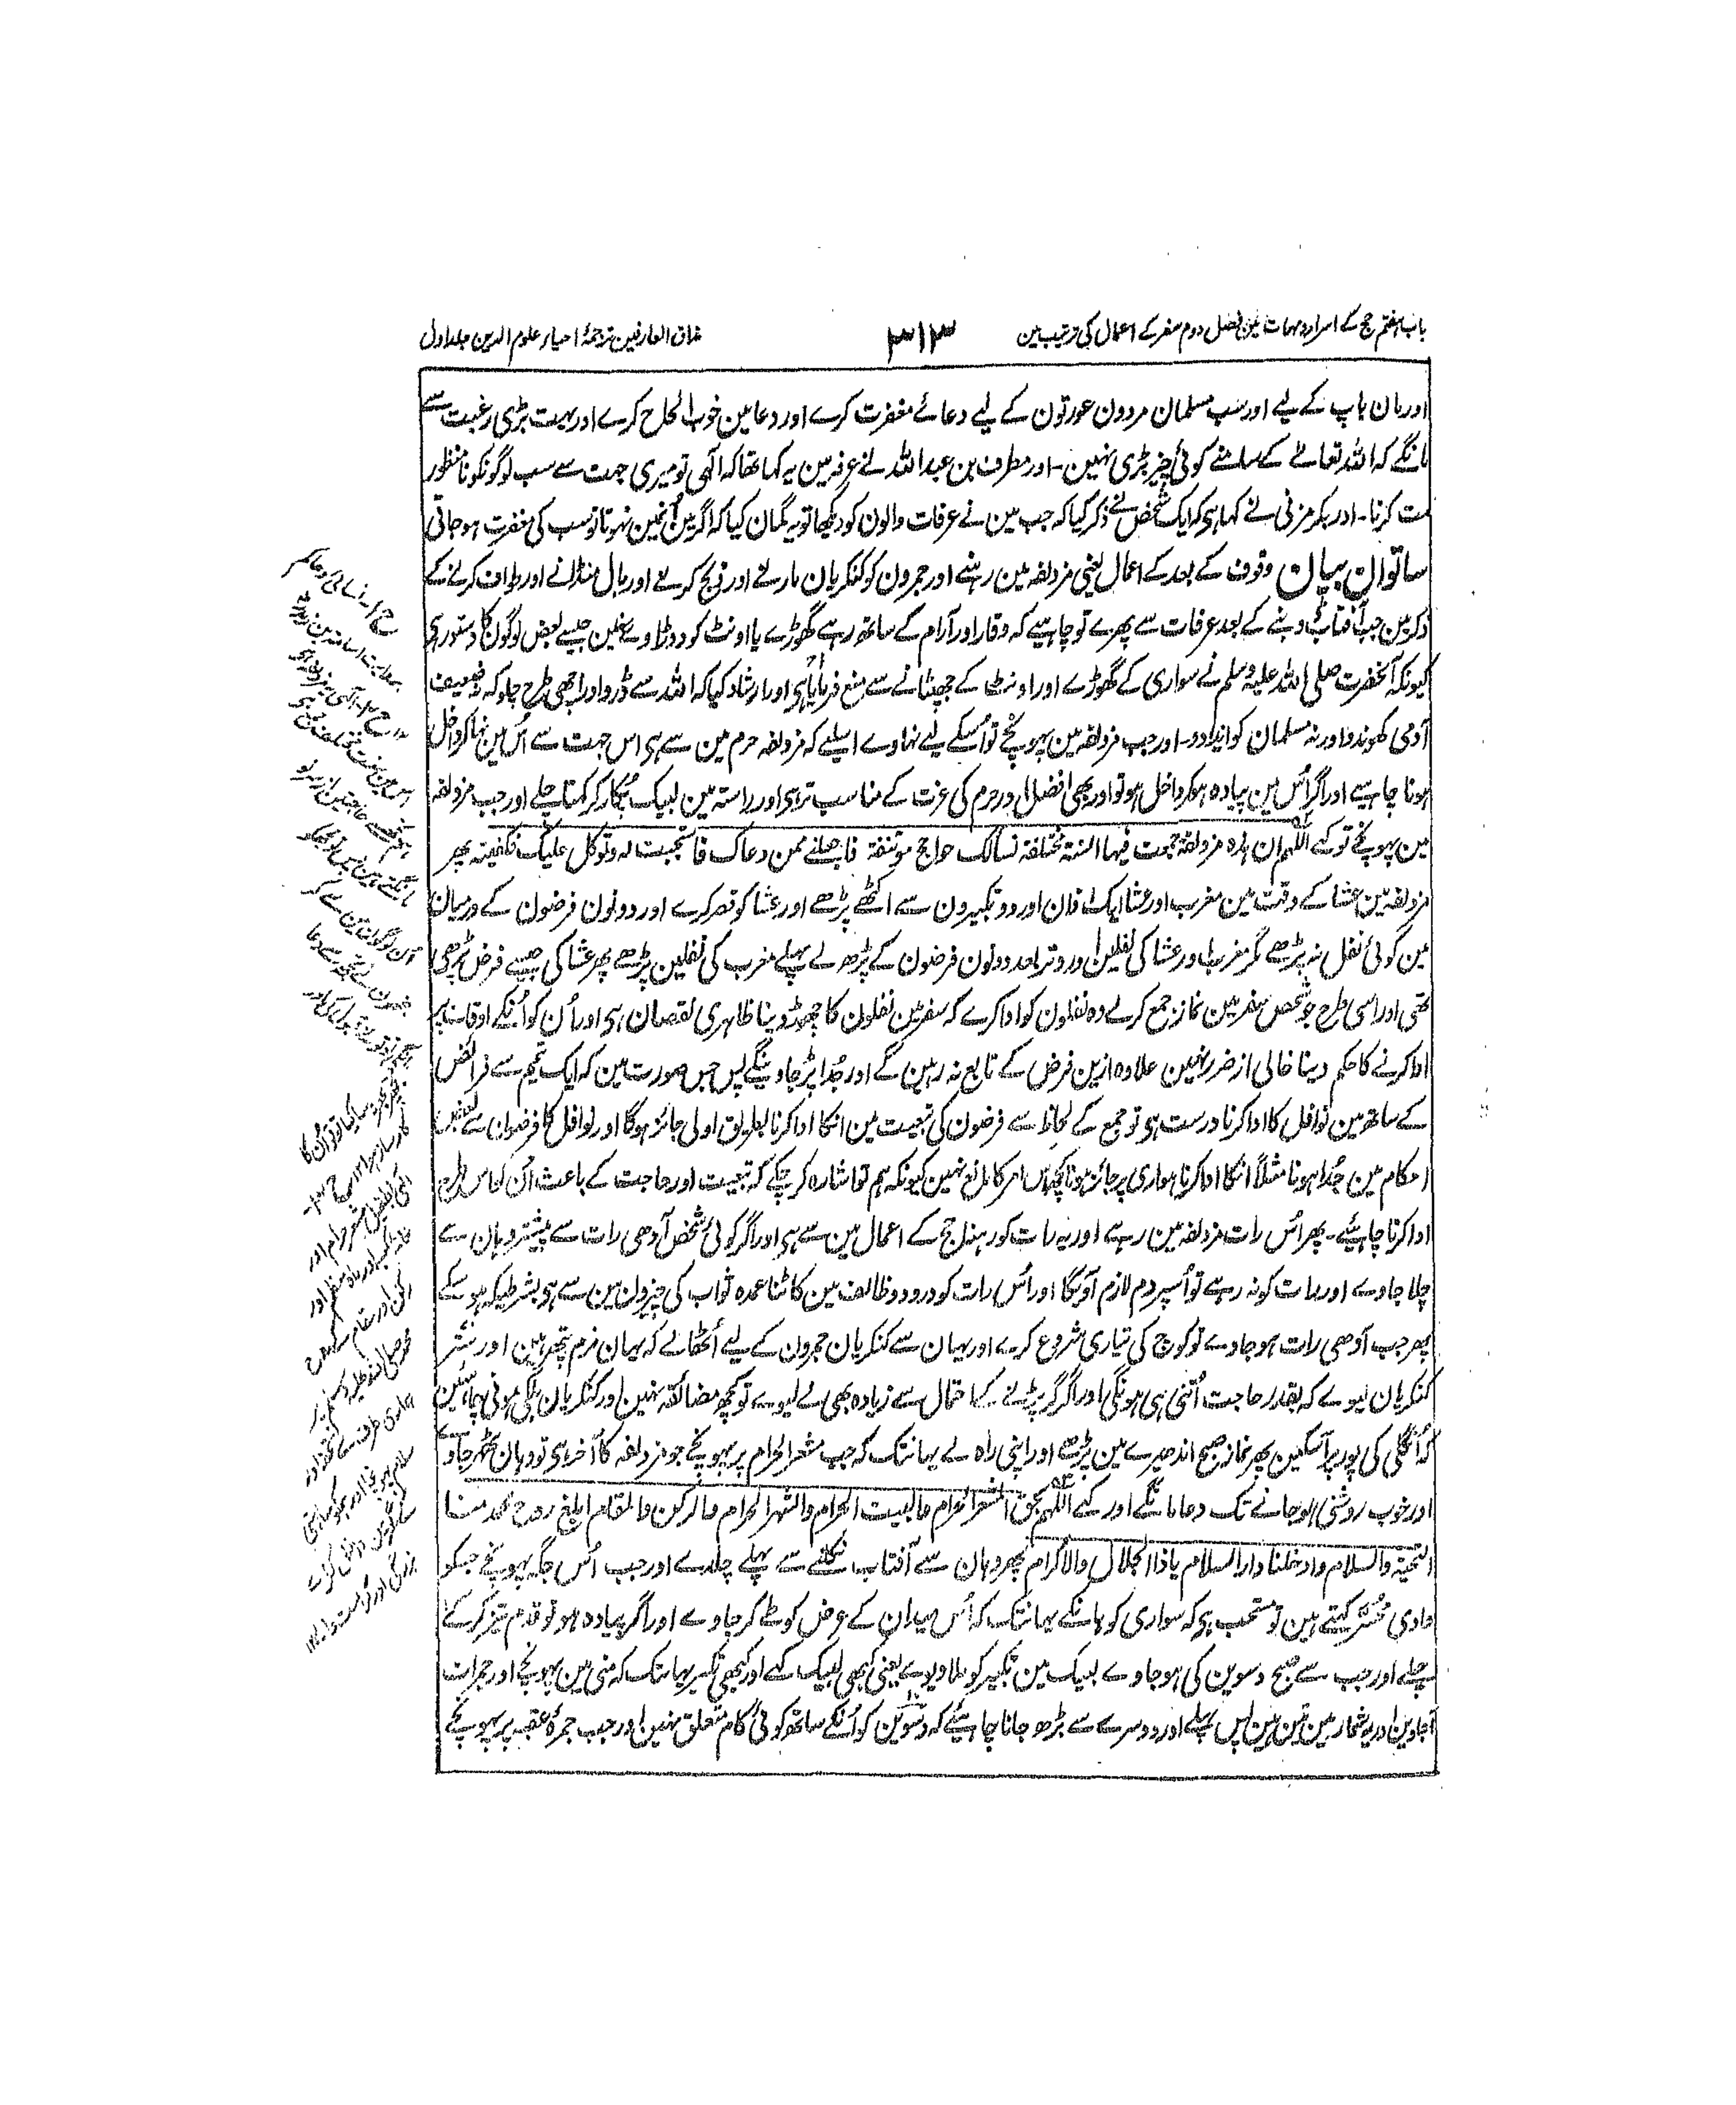 باب ہفتم حج کے اسرار و مہمات مین فصل دوم سفر کے اعمال کی ترتیب مین
۳۱۳
مذاق العارفین ترجمۂ احیاء علوم الدین جلد اول
اور مان باپ کے لیے اور سب مسلمان مردون عورتون کے لیے دعائے مغفرت کرے اور دعا مین خوب الحاح کرے اور بہت بڑی رغبت سے
مانگے کہ اللہ تعالے کے سامنے کوئی چیز بڑی نہین ۔ اور مطرف بن عبد اللہ نے عرفہ مین یہ کہا تھا کہ الٰہی تو میری جہت سے سب لوگونکو نا منظور
مت کرنا ۔ اور بکر مزنی نے کہا ہی کہ ایک شخص نے ذکر کیا کہ جب مین نے عرفات والون کو دیکھا تو یہ گمان کیا کہ اگر مین اُنمین نہوتا تو سب کی مغفرت ہو جاتی
ساتوان بیان وقوف کے بعد کے اعمال یعنی مزدلفہ مین رہنے اور جمرون کو کنکریان مارنے اور ذبح کرنے اور بال منڈانے اور طواف کرنے کے
ذکر مین جب آفتاب ڈوبنے کے بعد عرفات سے پھرے تو چاہیے کہ وقار اور آرام کے ساتھ رہے گھوڑے یا اونٹ کو دوڑاوے نہین جیسے بعض لوگون کا دستور ہی
کیونکہ آنحضرت صلی اللہ علیہ وسلم نے سواری کے گھوڑے اور اونٹ کے جھپٹانے سے منع فرمایا ہی اور ارشاد کیا کہ اللہ سے ڈرو اور اچھی طرح چلو کہ نہ ضعیف
آدمی کو روندو اور نہ مسلمان کو ایذا دو ۔ اور جب مزدلفہ مین پہونچے تو اُسکے لیے نہاوے اسلیے کہ مزدلفہ حرم مین سے ہی اس جہت سے اُس مین نہا کر داخل
ہونا چاہیے اور اگر اُس مین پیادہ ہو کر داخل ہو تو اور بھی افضل اور حرم کی عزت کے مناسب تر ہی اور راستہ مین لبیک پکار کر کہتا چلے اور جب مزدلفہ
مین پہونچے تو کہے اللّٰہم ان ہذہ مزدلفۃ جمعت فیہا السنۃ مختلفۃ نسالک حوائج موتنفۃ فاجعلنے ممن دعاک فاستجبت لہ وتوکل علیک فکفیتہ پھر
مزدلفہ مین عشا کے وقت مین مغرب اور عشا ایک اذان اور دو تکبیرون سے اکٹھے پڑھے اور عشا کو قصر کرے اور دونون فرضون کے درمیان
مین کوئی نفل نہ پڑھے مگر مغرب اور عشا کی نفلین اور وتر بعد دونون فرضون کے پڑھ لے پہلے مغرب کی نفلین پڑھے پھر عشا کی جیسے فرض پڑھی
تھی اور اسی طرح جو شخص سفر مین نماز جمع کرے وہ نفلون کو ادا کرے کہ سفر مین نفلون کا چھوڑ دینا ظاہری نقصان ہی اور اُن کو اُنکے اوقات پر
ادا کرنے کا حکم دینا خالی از ضرر نہین علاوہ ازین فرض کے تابع نہ رہین گے اور جدا پڑ جاوینگے پس جس صورت مین کہ ایک تیمم سے فرائض
کے ساتھ مین نوافل کا ادا کرنا درست ہی تو جمع کے لحاظ سے فرضون کی تبعیت مین انکا ادا کرنا بطریق اولی جائز ہوگا اور نوافل کا فرضون سے بعض
احکام مین جدا ہونا مثلاً انکا ادا کرنا سواری پر جائز ہونا کچھ اس امر کا مانع نہین کیونکہ ہم تو اشارہ کر چکے کہ تبعیت اور حاجت کے باعث اُن کو اس طرح
ادا کرنا چاہیے ۔ پھر اُس رات مزدلفہ مین رہے اور یہ رات کو رہنا حج کے اعمال مین سے ہی اور اگر کوئی شخص آدھی رات سے پیشتر وہان سے
چلا جاوے اور رات کو نہ رہے تو اُسپر دم لازم آویگا اور اُس رات کو درود و وظائف مین کاٹنا عمدہ ثواب کی چیزون مین سے ہو بشرطیکہ ہو سکے
پھر جب آدھی رات ہو جاوے تو کوچ کی تیاری شروع کرے اور یہان سے کنکریان جمرون کے لیے اُٹھالے کہ یہان نرم پتھر ہین اور ستر
کنکریان لیوے کہ بقدر حاجت اُتنی ہی ہونگی اور اگر گر پڑنے کے احتمال سے زیادہ بھی لے لیوے تو کچھ مضائقہ نہین اور کنکریان ہلکی ہونی چاہئین
کہ اُنگلی کی پور پر آ سکین پھر نماز صبح اندھیرے مین پڑھے اور اپنی راہ لے یہانتک کہ جب مشعر الحرام پر پہونچے جو مزدلفہ کا آخر ہی تو وہان ٹھہر جاوے
اور خوب روشنی ہو جانے تک دعا مانگے اور کہے اللّٰہم بحق المشعر الحرام والبیت الحرام والشہر الحرام والرکن والمقام ابلغ روح محمد منا
التحیۃ والسلام وادخلنا دار السلام یا ذا الجلال والاکرام پھر وہان سے آفتاب نکلنے سے پہلے چلدے اور جب اُس جگہ پہونچے جسکو
وادی محسّر کہتے ہین تو مستحب ہی کہ سواری کو ہانکے یہانتک کہ اُس میدان کے عرض کو طے کر جاوے اور اگر پیادہ ہو تو قدم تیز کر کے
چلے اور جب سے صبح دسوین کی ہو جاوے لبیک مین تکبیر کو ملا دیوے یعنی کبھی لبیک کہے اور کبھی تکبیر یہانتک کہ منی مین پہونچے اور جمرات
آجاوین اور یہ شمار مین تین ہین پس پہلے اور دوسرے سے بڑھ جانا چاہیئے کہ دسوین کو اُنکے ساتھ کوئی کام متعلق نہین اور جب جمرۂ عقبہ پر پہونچے